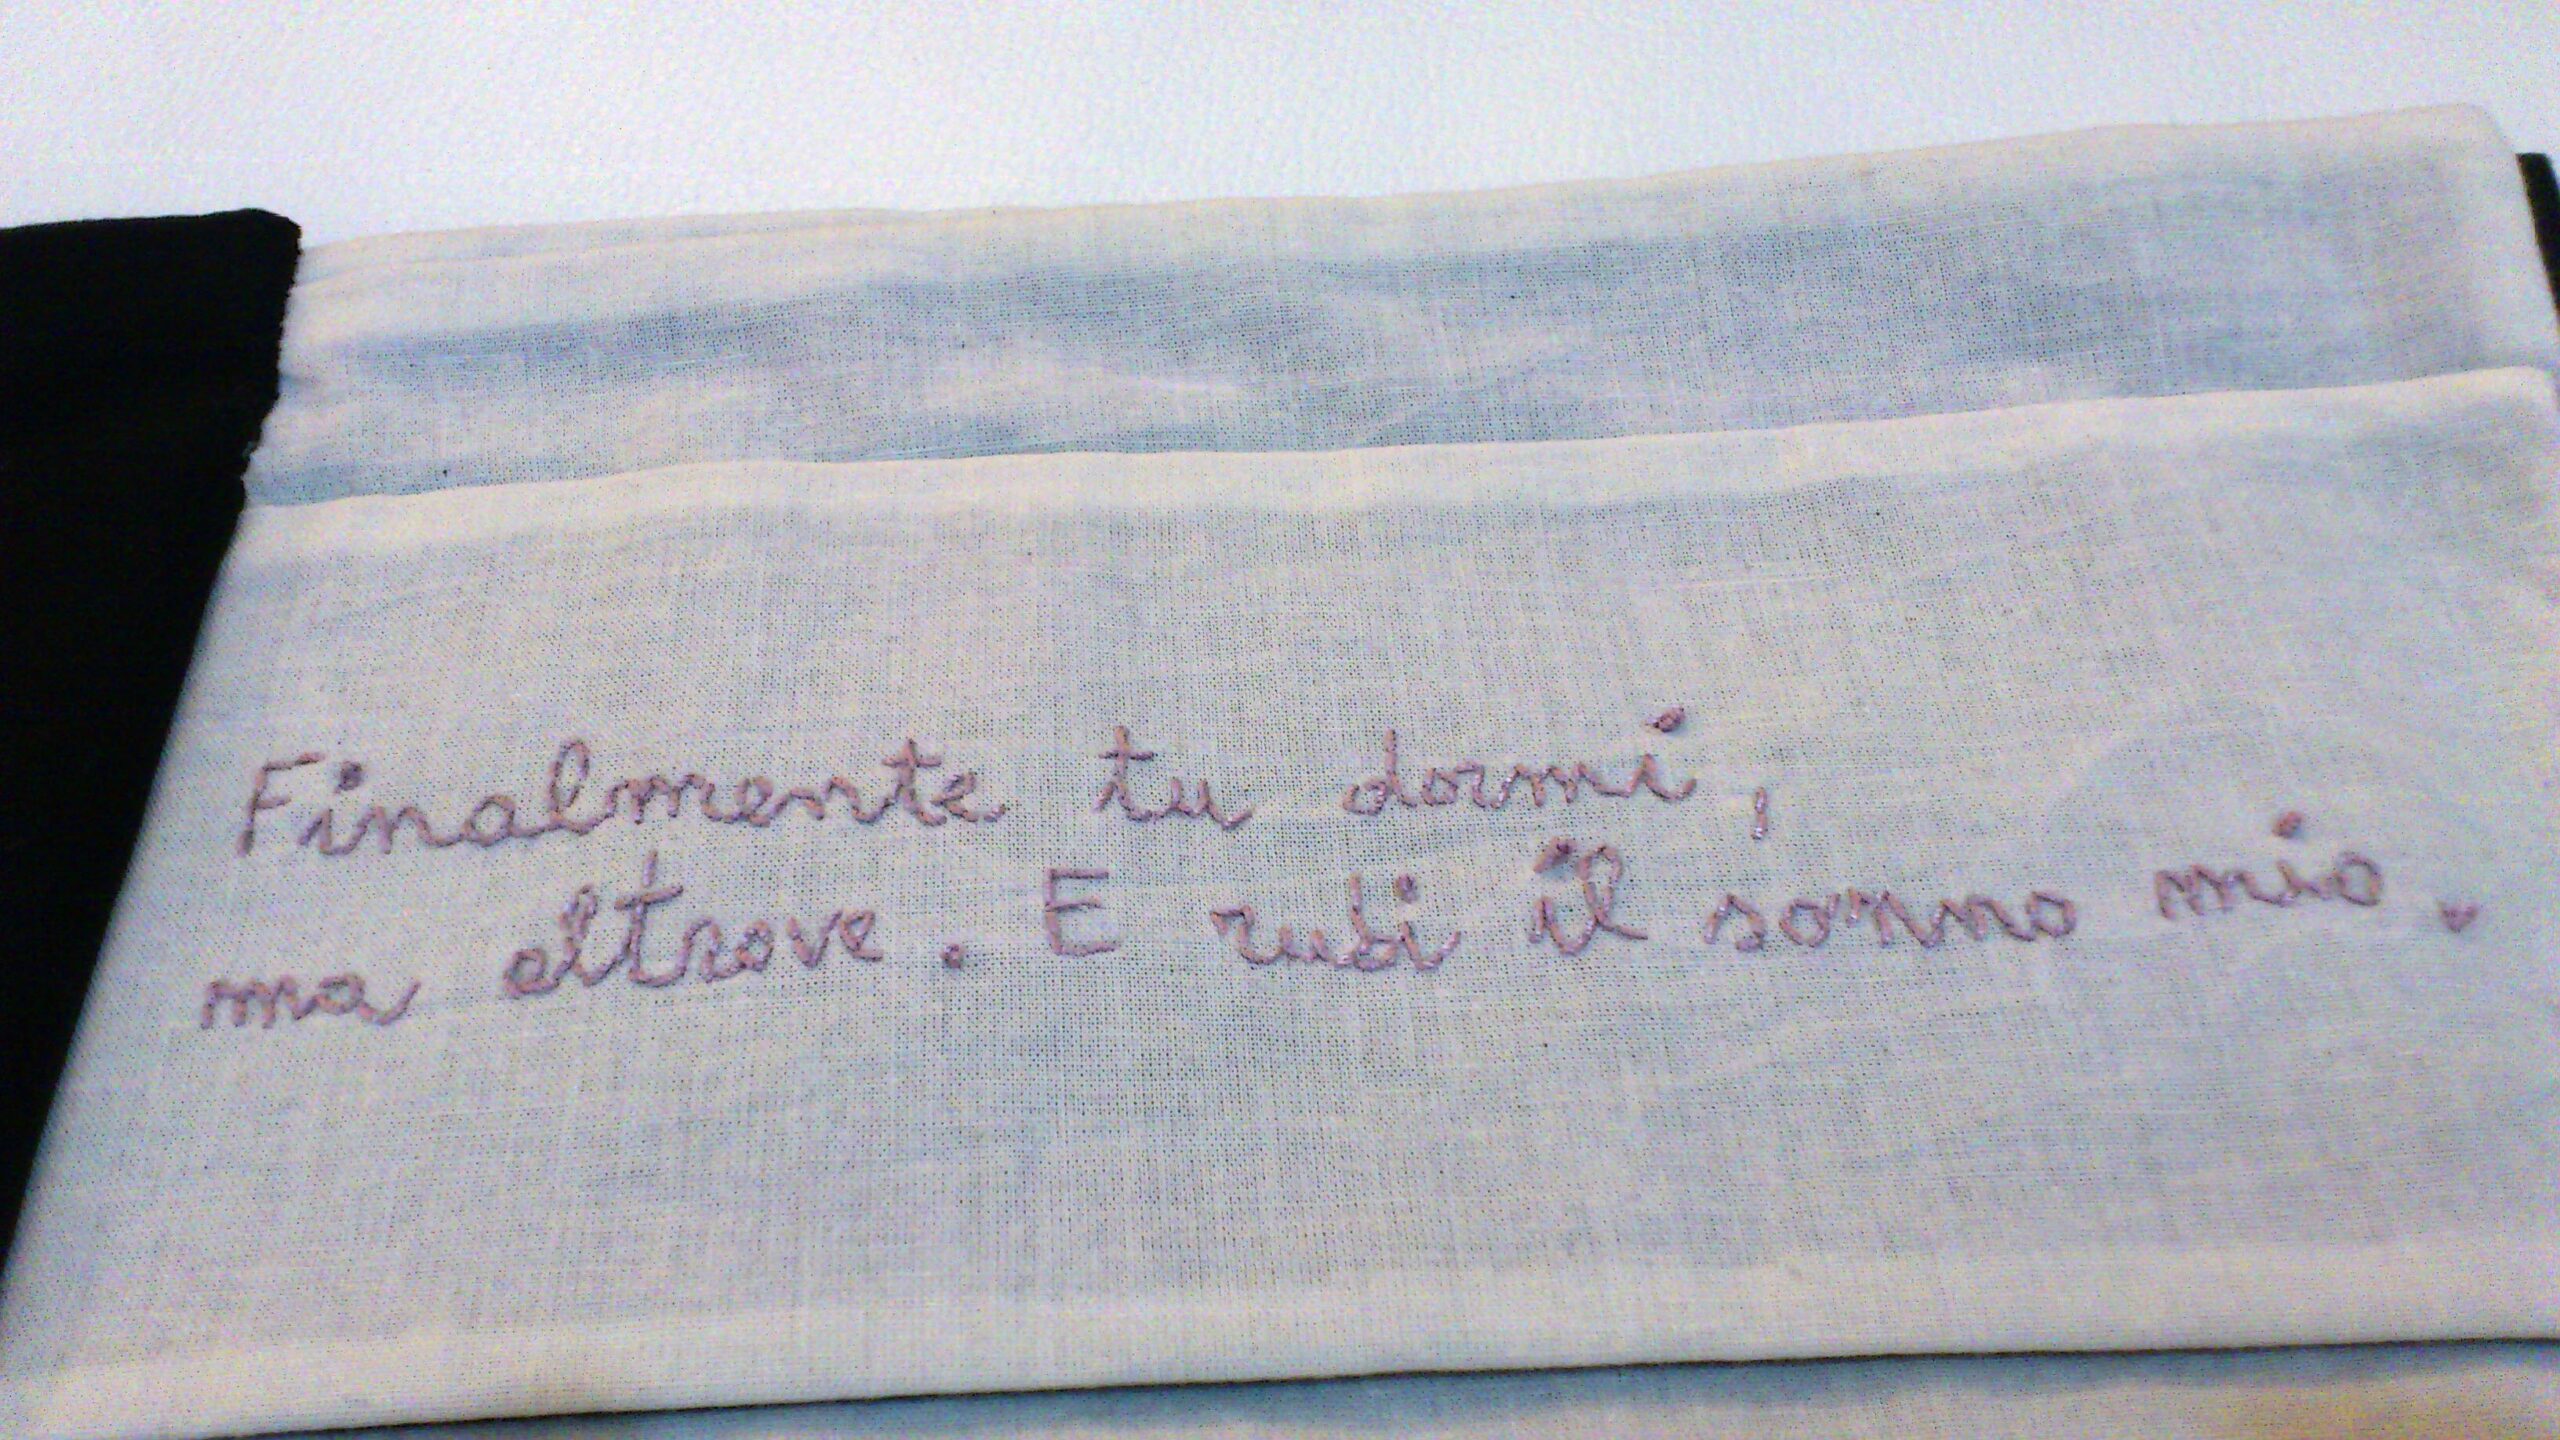 Finalmente tu dormi,
ma altrove. E rubi il sonno mio.